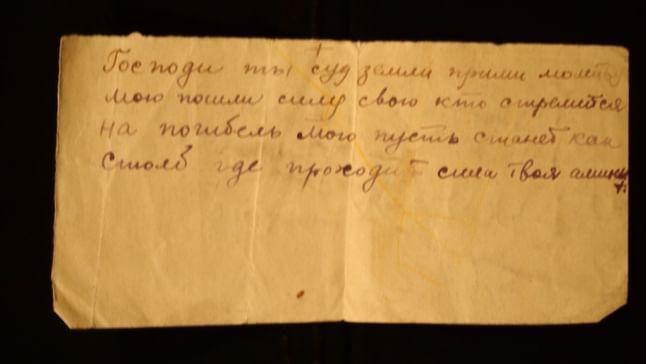 Господи ты суд земли прими молитву
мою пошли силу свою кто стремится
на погибель мою пусть станет как
столб где проходит сила твоя аминь